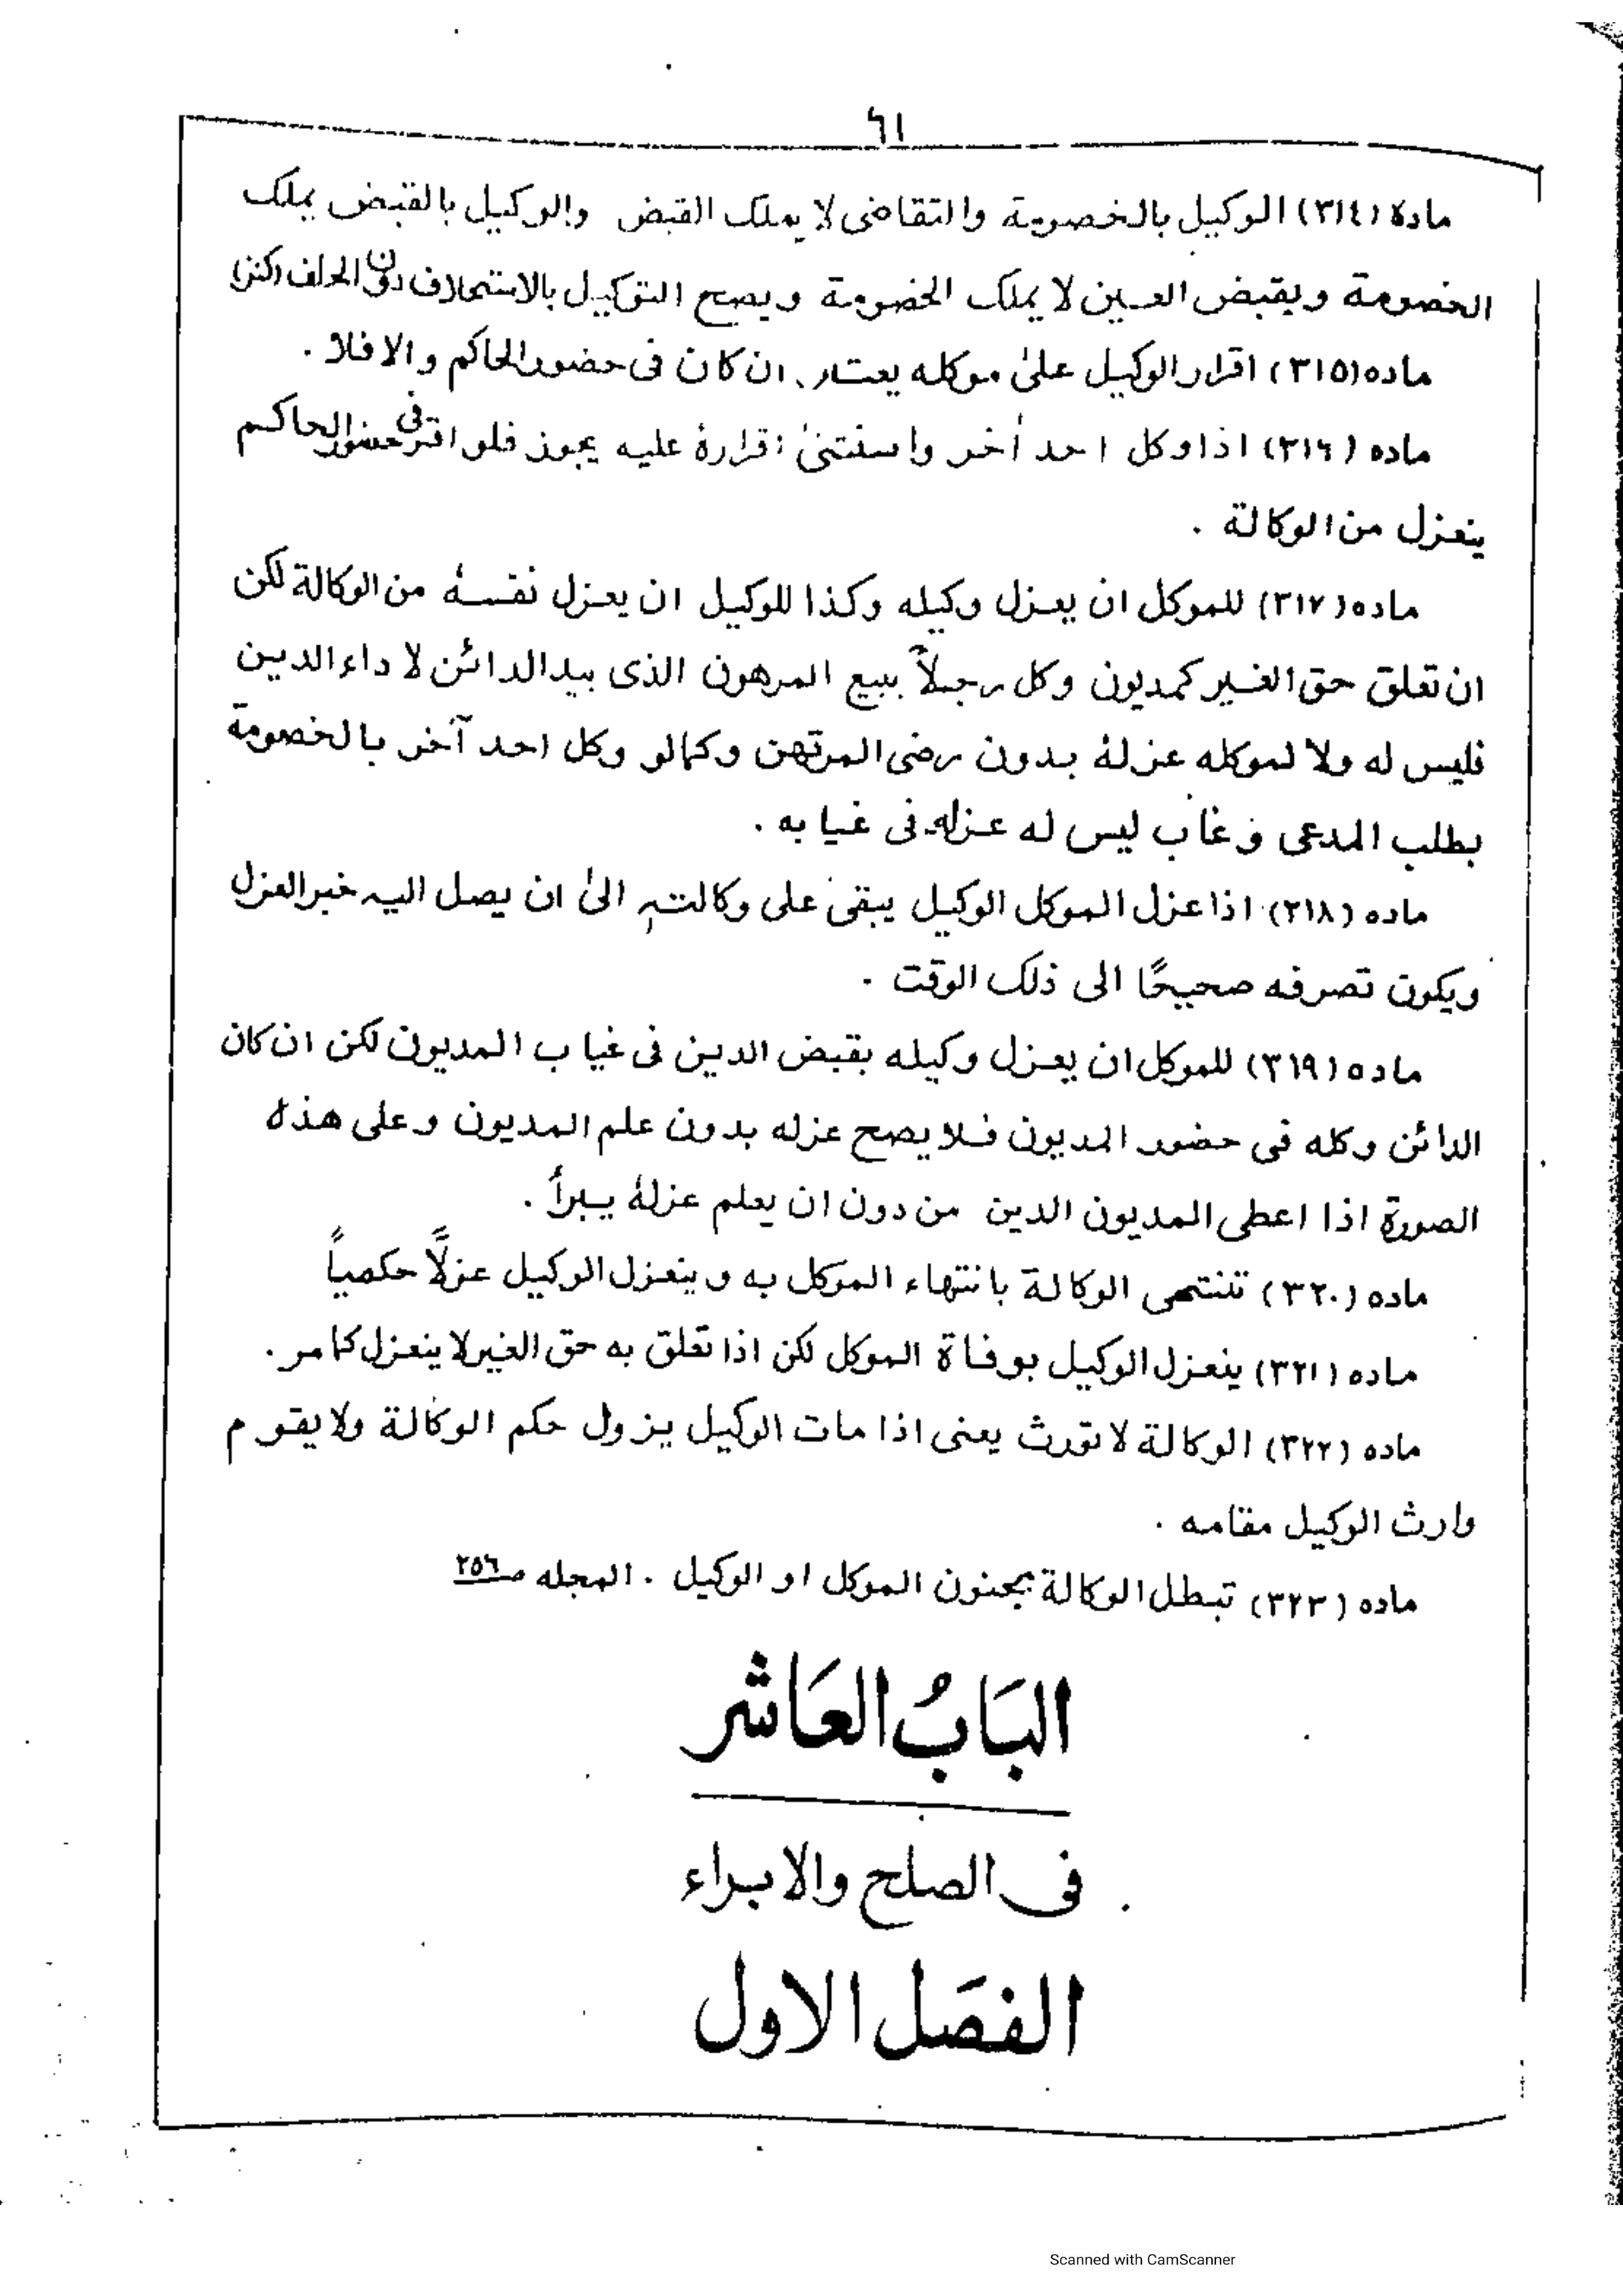 ٦١
ماده (٣١٤) الوكيل بالخصومة والتقاضى لا يملك القبض والوكيل بالقبض يملك
الخصومة وبقبض العين لا يملك الخصومة ويصح التوكيل بالاستحلاف دون الحلف (كنز)
ماده (٣١٥) اقرار الوكيل علىٰ موكله يعتبر ان كان فى حضور الحاكم والا فلا .
ماده (٣١٦) اذا وكل احد أخر واستثنىٰ اقرارهٔ عليه يجوز فلو اقر فى حضور الحاكم
ينعزل من الوكالة .
ماده (٣١٧) للموكل ان يعزل وكيله وكذا للوكيل ان يعزل نفسهٔ من الوكالة لكن
ان تعلق حق الغير كمديون وكل رجلاً ببيع المرهون الذى بيد الدائن لا داء الدين
فليس له ولا لموكله عزلهٔ بدون رضى المرتهن وكمالو وكل احد آخر بالخصومة
بطلب المدعى وغاب ليس له عزله فى غيابه .
ماده (٣١٨) اذا عزل الموكل الوكيل يبقىٰ على وكالته الىٰ ان يصل اليه خبر العزل
ويكون تصرفه صحيحًا الى ذلك الوقت .
ماده (٣١٩) للموكل ان يعزل وكيله بقبض الدين فى غياب المديون لكن ان كان
الدائن وكله فى حضور المديون فلا يصح عزله بدون علم المديون وعلى هذه
الصورة اذا اعطى المديون الدين من دون ان يعلم عزلهٔ يبرأ .
ماده (٣٢٠) تنتهى الوكالة بانتهاء الموكل به وينعزل الوكيل عزلًا حكمياً
ماده (٣٢١) ينعزل الوكيل بوفاة الموكل لكن اذا تعلق به حق الغير لا ينعزل كما مر .
ماده (٣٢٢) الوكالة لا تورث يعنى اذا مات الوكيل يزول حكم الوكالة ولا يقوم
وارث الوكيل مقامه .
ماده (٣٢٣) تبطل الوكالة بجنون الموكل او الوكيل . المجله صـ٢٥٦
البَابُ العَاشر
فى الصلح والابراء
الفصَل الاول
Scanned with CamScanner